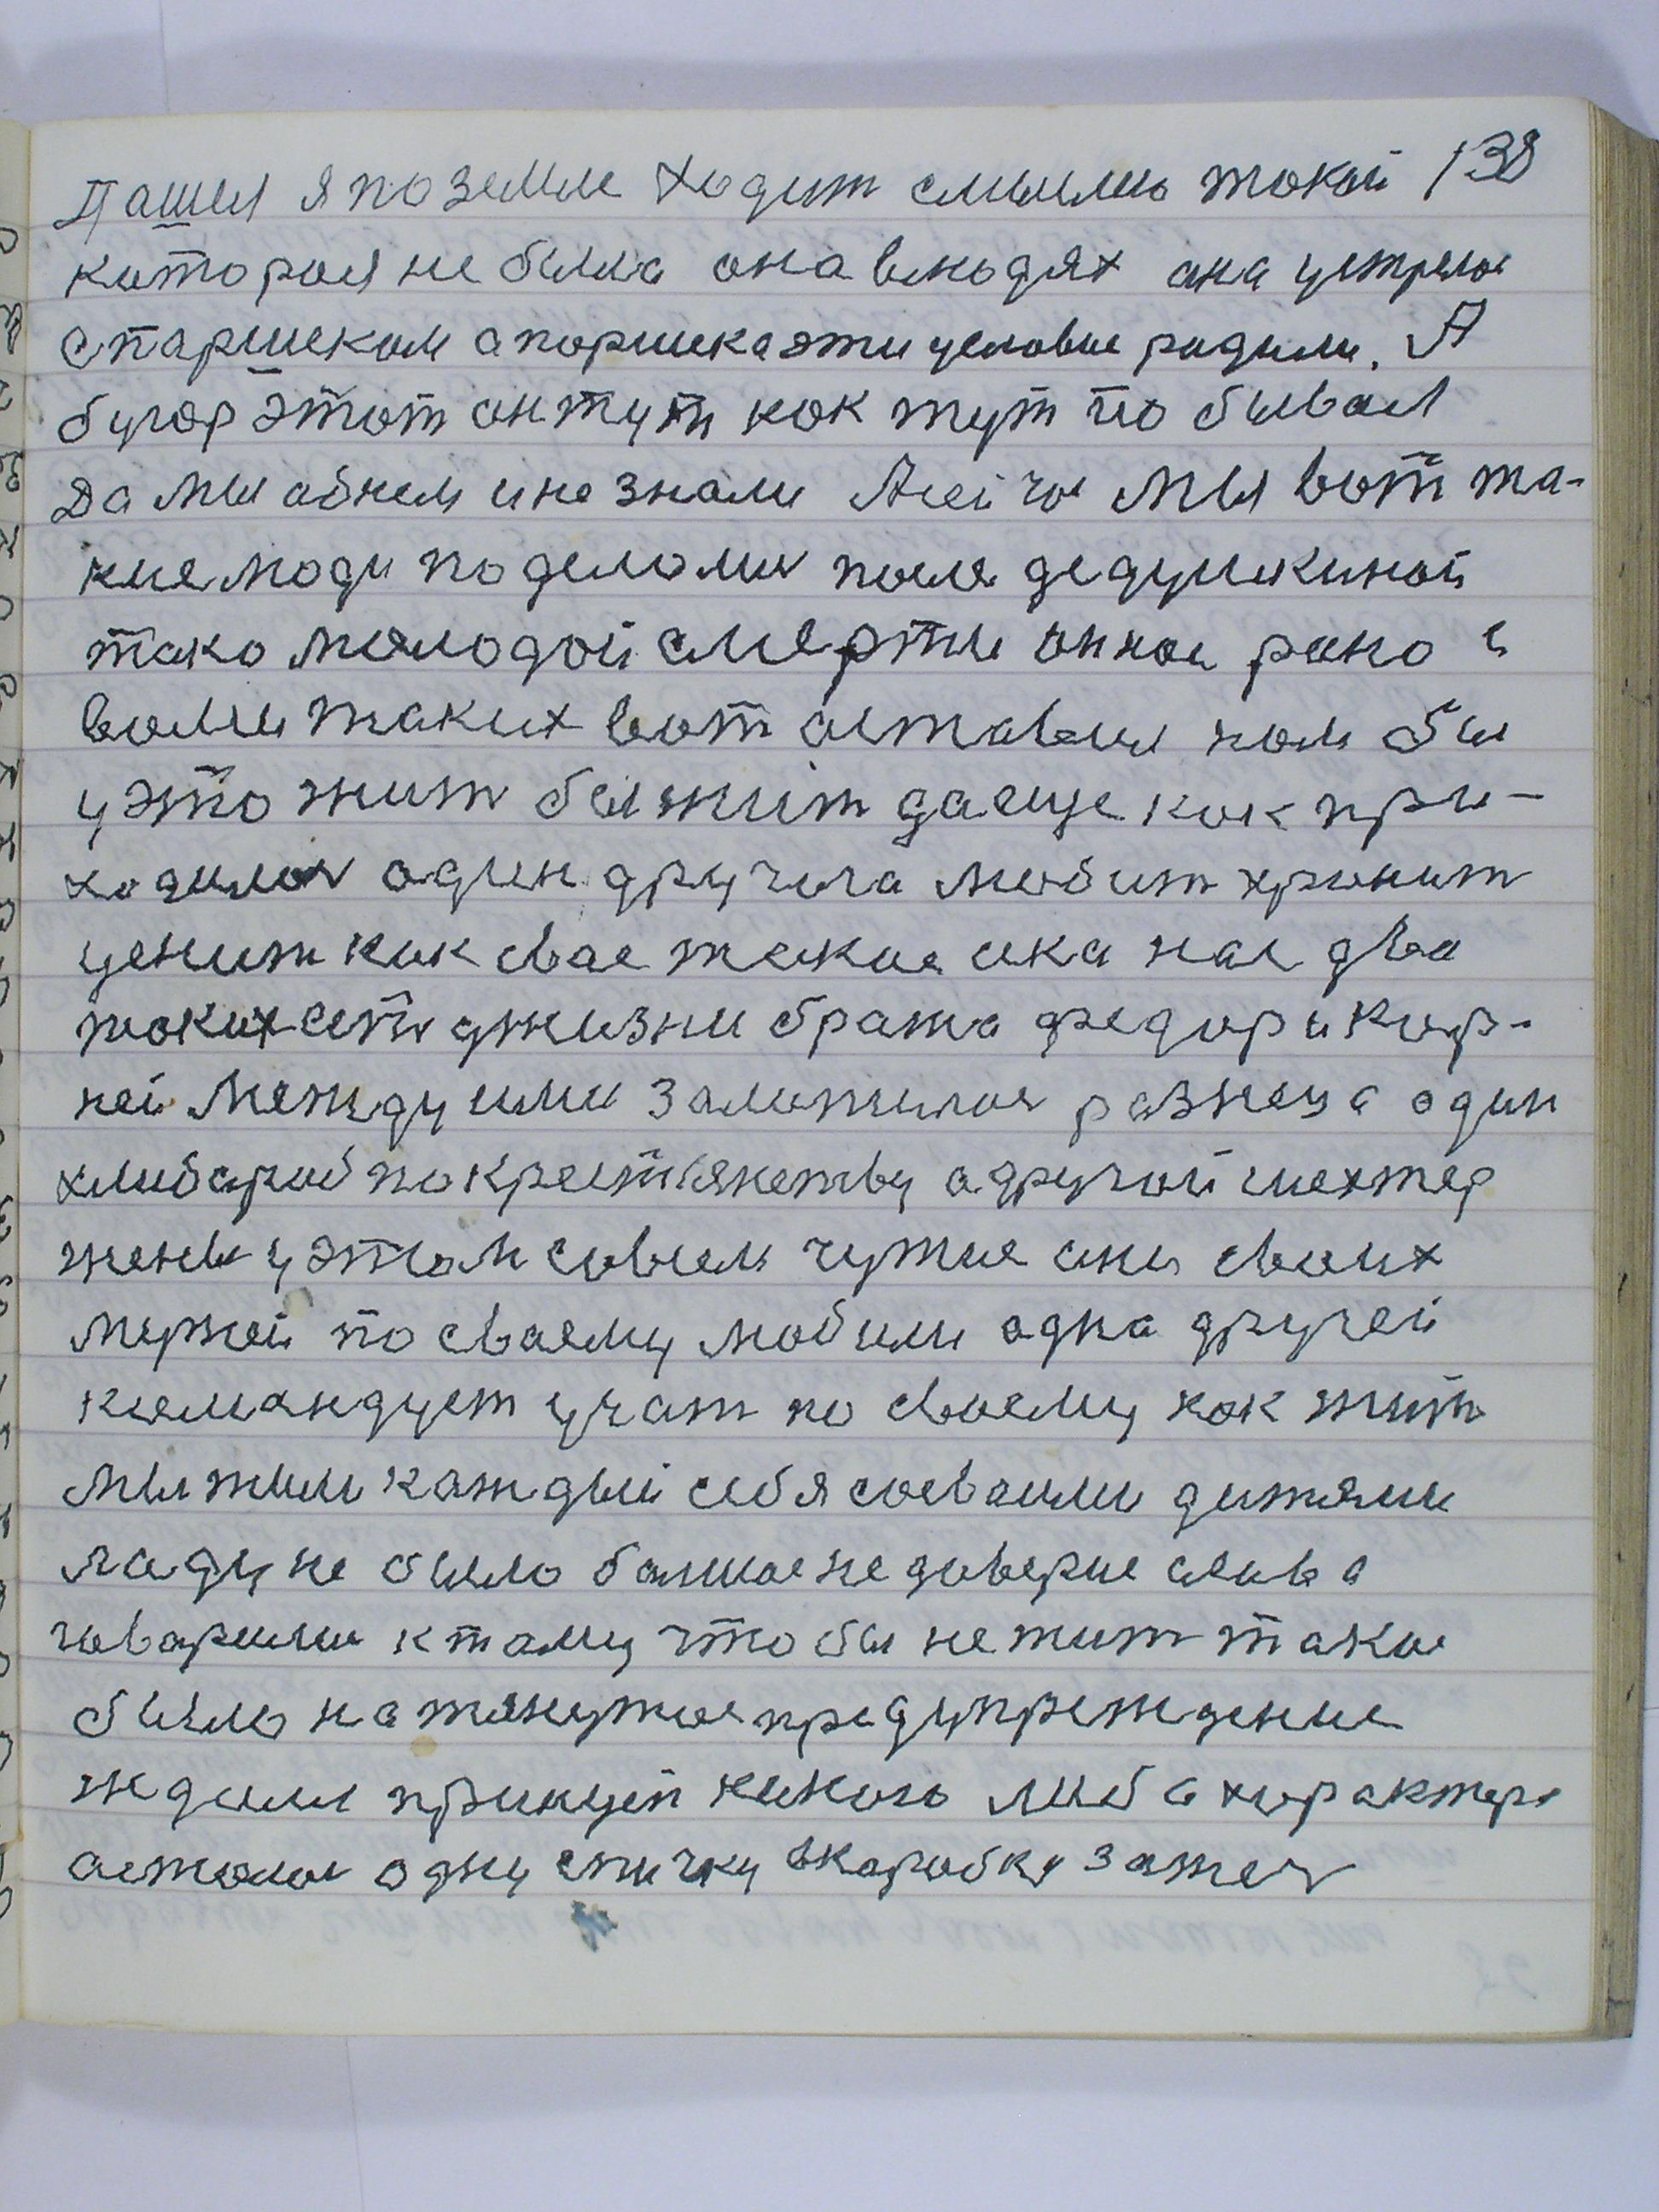 Пашел я по земле ходит смысль такой 138
которая не была она влюдях ана устряла
спаршеком апоршека эти условие радили. А
бугор этот он тут как тут по бывал
да мы обнем и не знали Ансиче мы вот та-
кие люди по делами посля дедушкиной
тако молодой смерти он нас рано с
вами таких вот аставил нам бы
у это жит бы жит да еще как при-
ходилос один другога любит хранит
ценит как свае такое ека нас два
таких ест джизни брата Федор и Кор-
ней Между ими заметилас разнеца один
хлибороб по крестьянству адругой шехтер
жены у этом совсем чужие они своих
мужей по своему любили одна другей
камандует учат по своему как жить
мы жили каждый себя сосваими дитями
ладу не было болшое не доверие слава
говарили к таму что бы не жит такое
было на тянутое предупреждение
ждали принцеп какогь либа характера
астолас одну спичку вкаробку зажеч